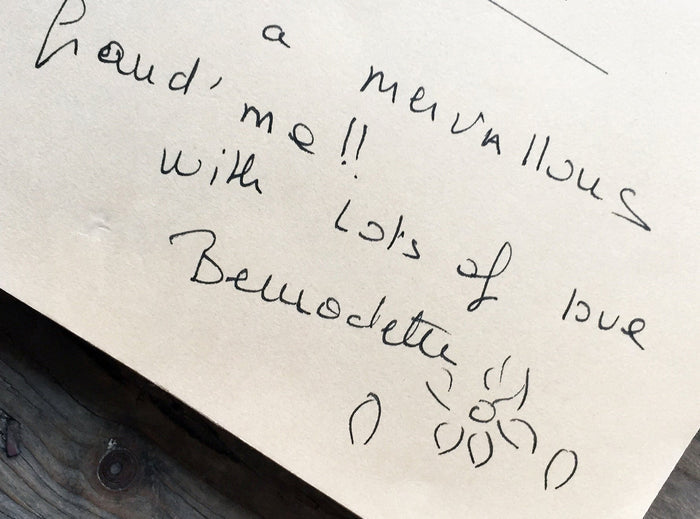 a mervallous
Grand' me!!
with Lots of love
Bernadette